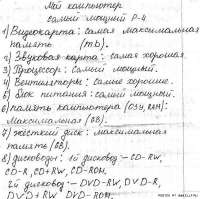 Мой компьютер
самый мощный Р-4
1) Видеокарта: самая максимальная
память (mb).
2) Звуковая карта: самая хорошая.
3) Процессор: самый мощный.
4) Вентиляторы: самые хорошие.
5) Блок питания: самый мощный.
6) память компьютера (ОЗУ, ROM):
Максимальная (GB).
7) жёсткий диск: максимальная
память (GB).
8) дисководы: 1й дисковод:- CD-RW,
CD-R, CD+RW, CD-ROM,
2й дисковод:- DVD-RW, DVD-R,
DVD+RW DVD-ROM.